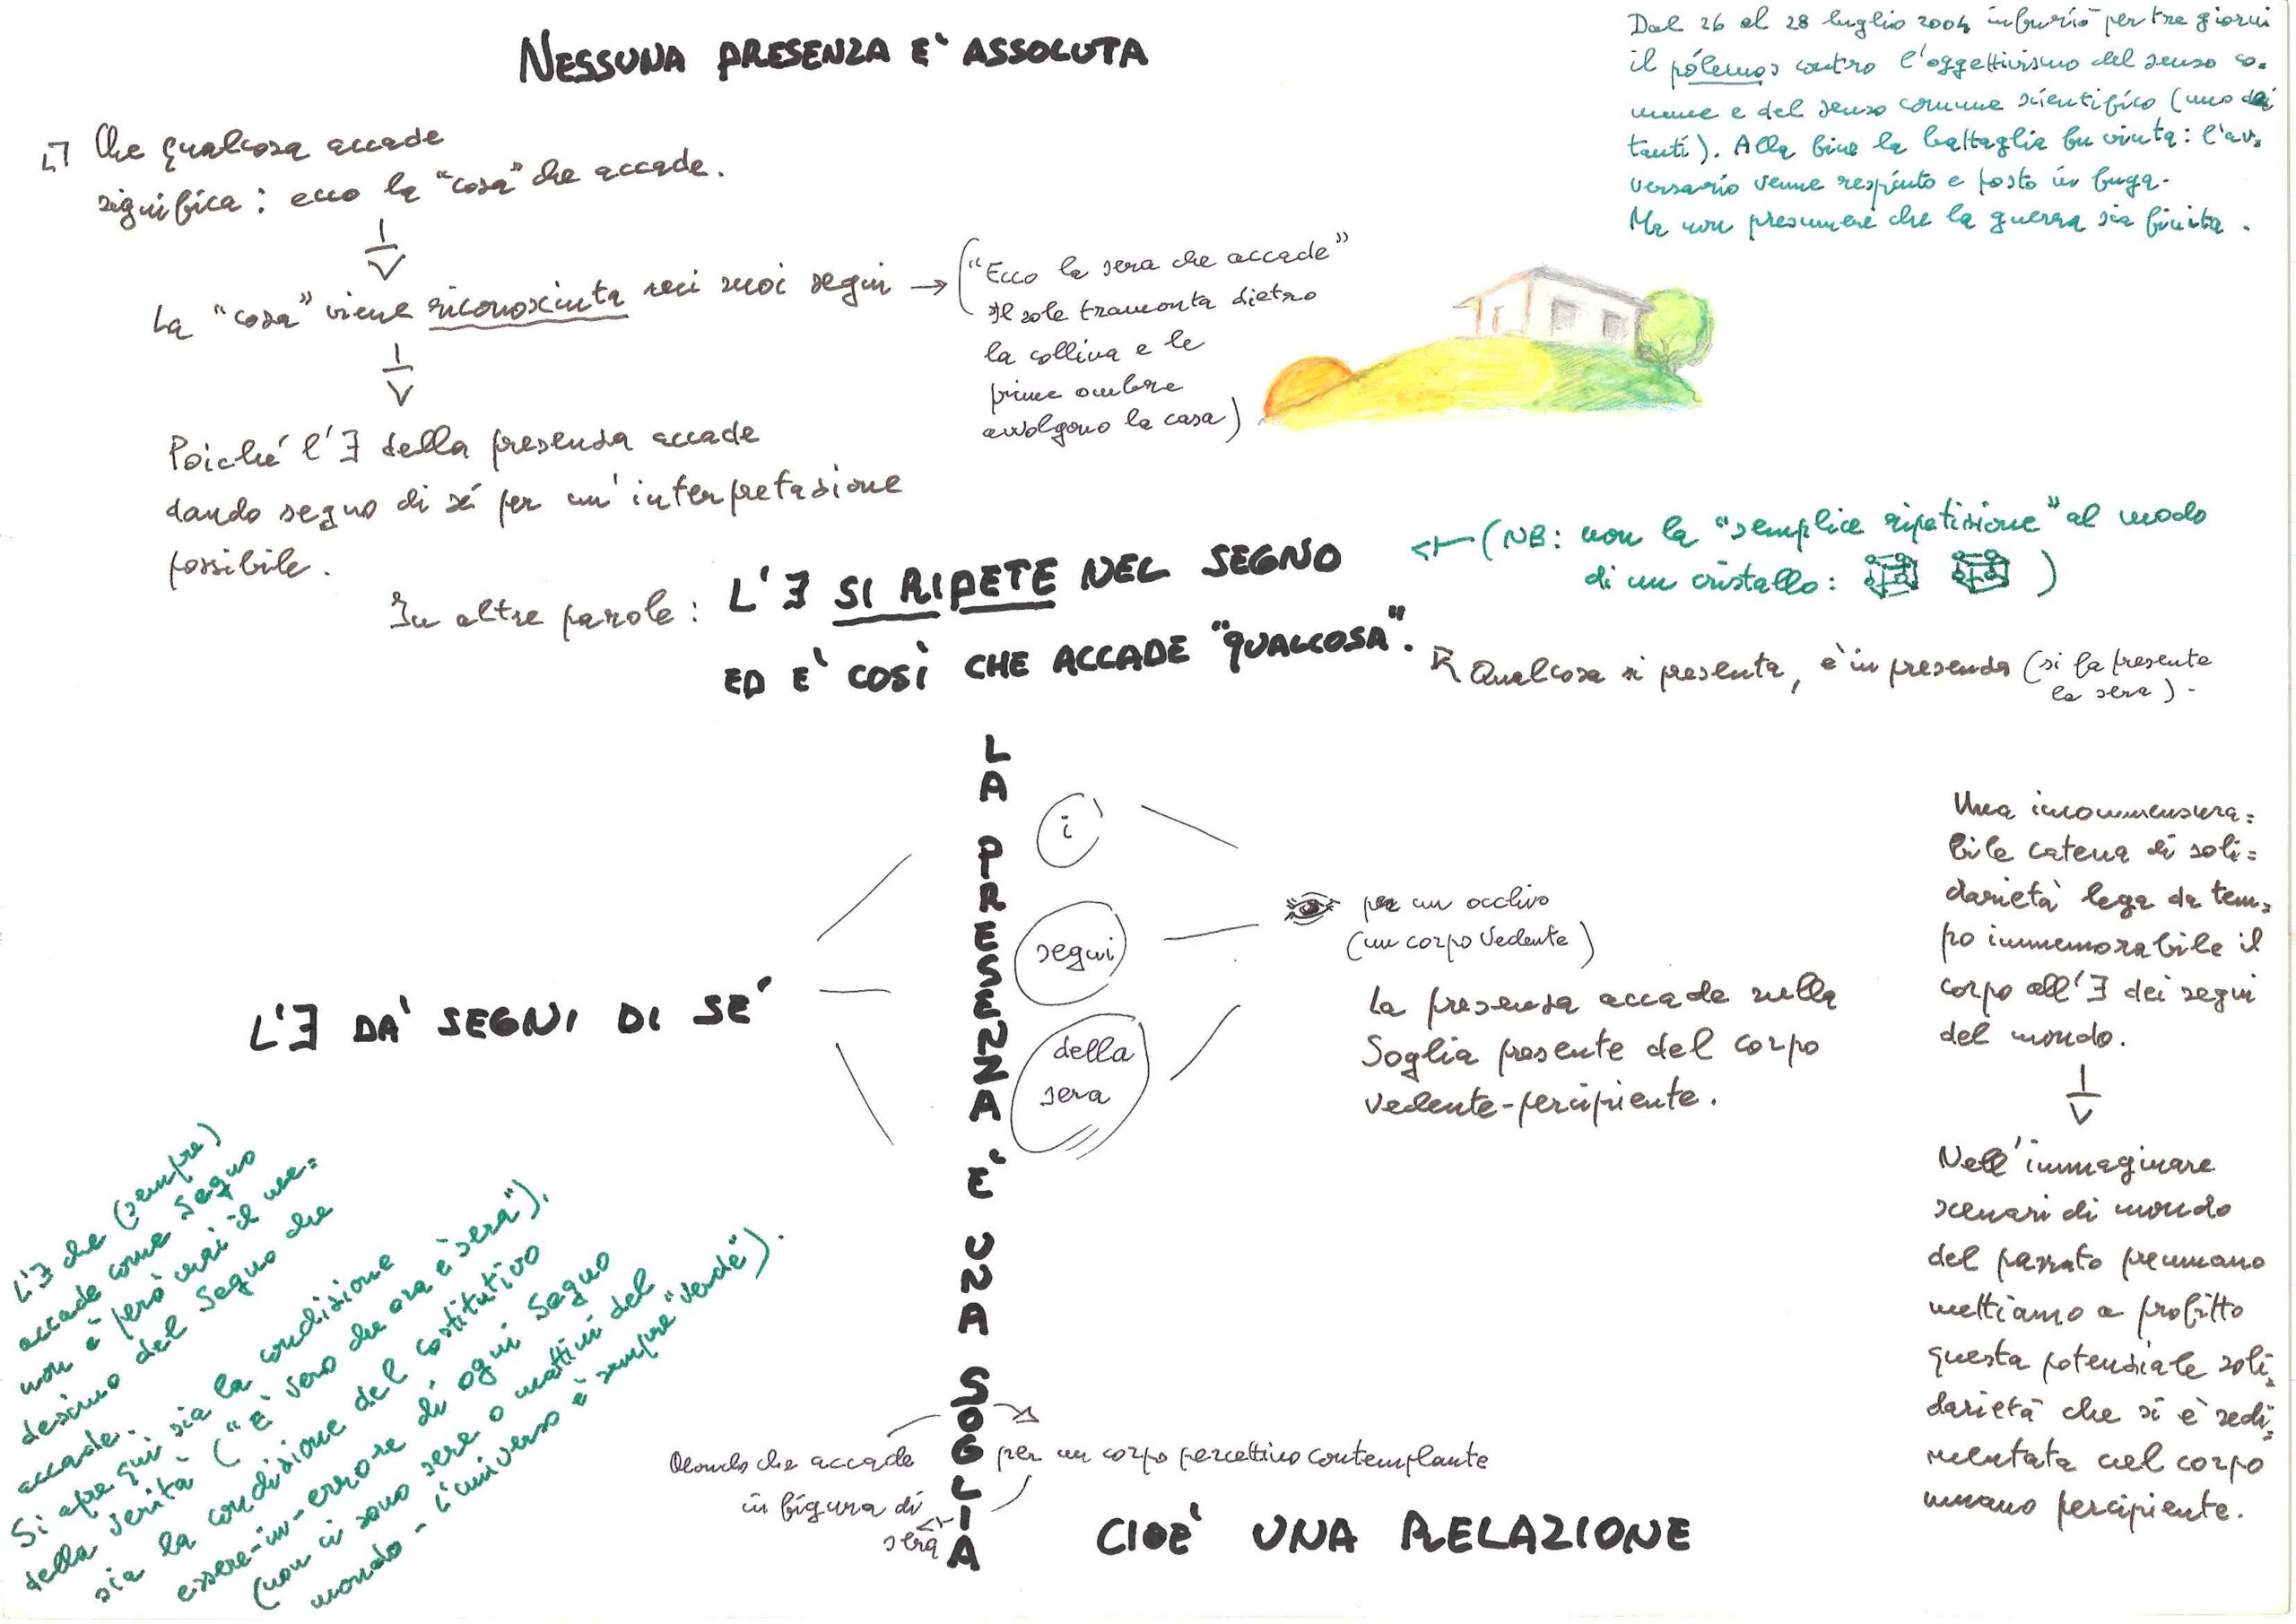 NESSUNA PRESENZA E' ASSOLUTA
Dal 26 al 28 luglio 2004 infuriò per tre giorni
il pólemos contro l'oggettivismo del senso co-
mune e del senso comune scientifico (uno dei
tanti). Alla fine la battaglia fu vinta: l'av-
versario venne respinto e posto in fuga.
Ma non presumere che la guerra sia finita.
Che qualcosa accade
significa: ecco la "cosa" che accade.
La "cosa" viene riconosciuta nei suoi segni →
("Ecco la sera che accade"
Il sole tramonta dietro
la collina e le
prime ombre
avvolgono la casa)
Poiché l'∃ della presenza accade
dando segno di sé per un'interpretazione
possibile.
In altre parole: L'∃ SI RIPETE NEL SEGNO
ED E' COSÌ CHE ACCADE "QUALCOSA".
(NB: non la "semplice ripetizione" al modo
di un cristallo: )
Qualcosa si presenta, è in presenza (si fa presente
la sera).
LA PRESENZA E' UNA SOGLIA
i
segni
della
sera
L'∃ DA' SEGNI DI SE'
per un occhio
(un corpo vedente)
La presenza accade nella
Soglia presente del corpo
vedente-percipiente.
Una incommensura=
bile catena di soli=
darietà lega da tem=
po immemorabile il
corpo all'∃ dei segni
del mondo.
Nell'immaginare
scenari di mondo
del passato preumano
mettiamo a profitto
questa potenziale soli=
darietà che si è sedi=
mentata nel corpo
umano percipiente.
L'∃ che (sempre)
accade come Segno
non è però mai il me=
desimo del Segno che
accade.
Si apre qui sia la condizione
della verità ("è vero che ora è sera"),
sia la condizione del costitutivo
essere-in-errore di ogni Segno
(non ci sono sere o mattini del
mondo - l'universo è sempre "verde").
Mondo che accade
in figura di
sera
per un corpo percettivo contemplante
CIOE' UNA RELAZIONE